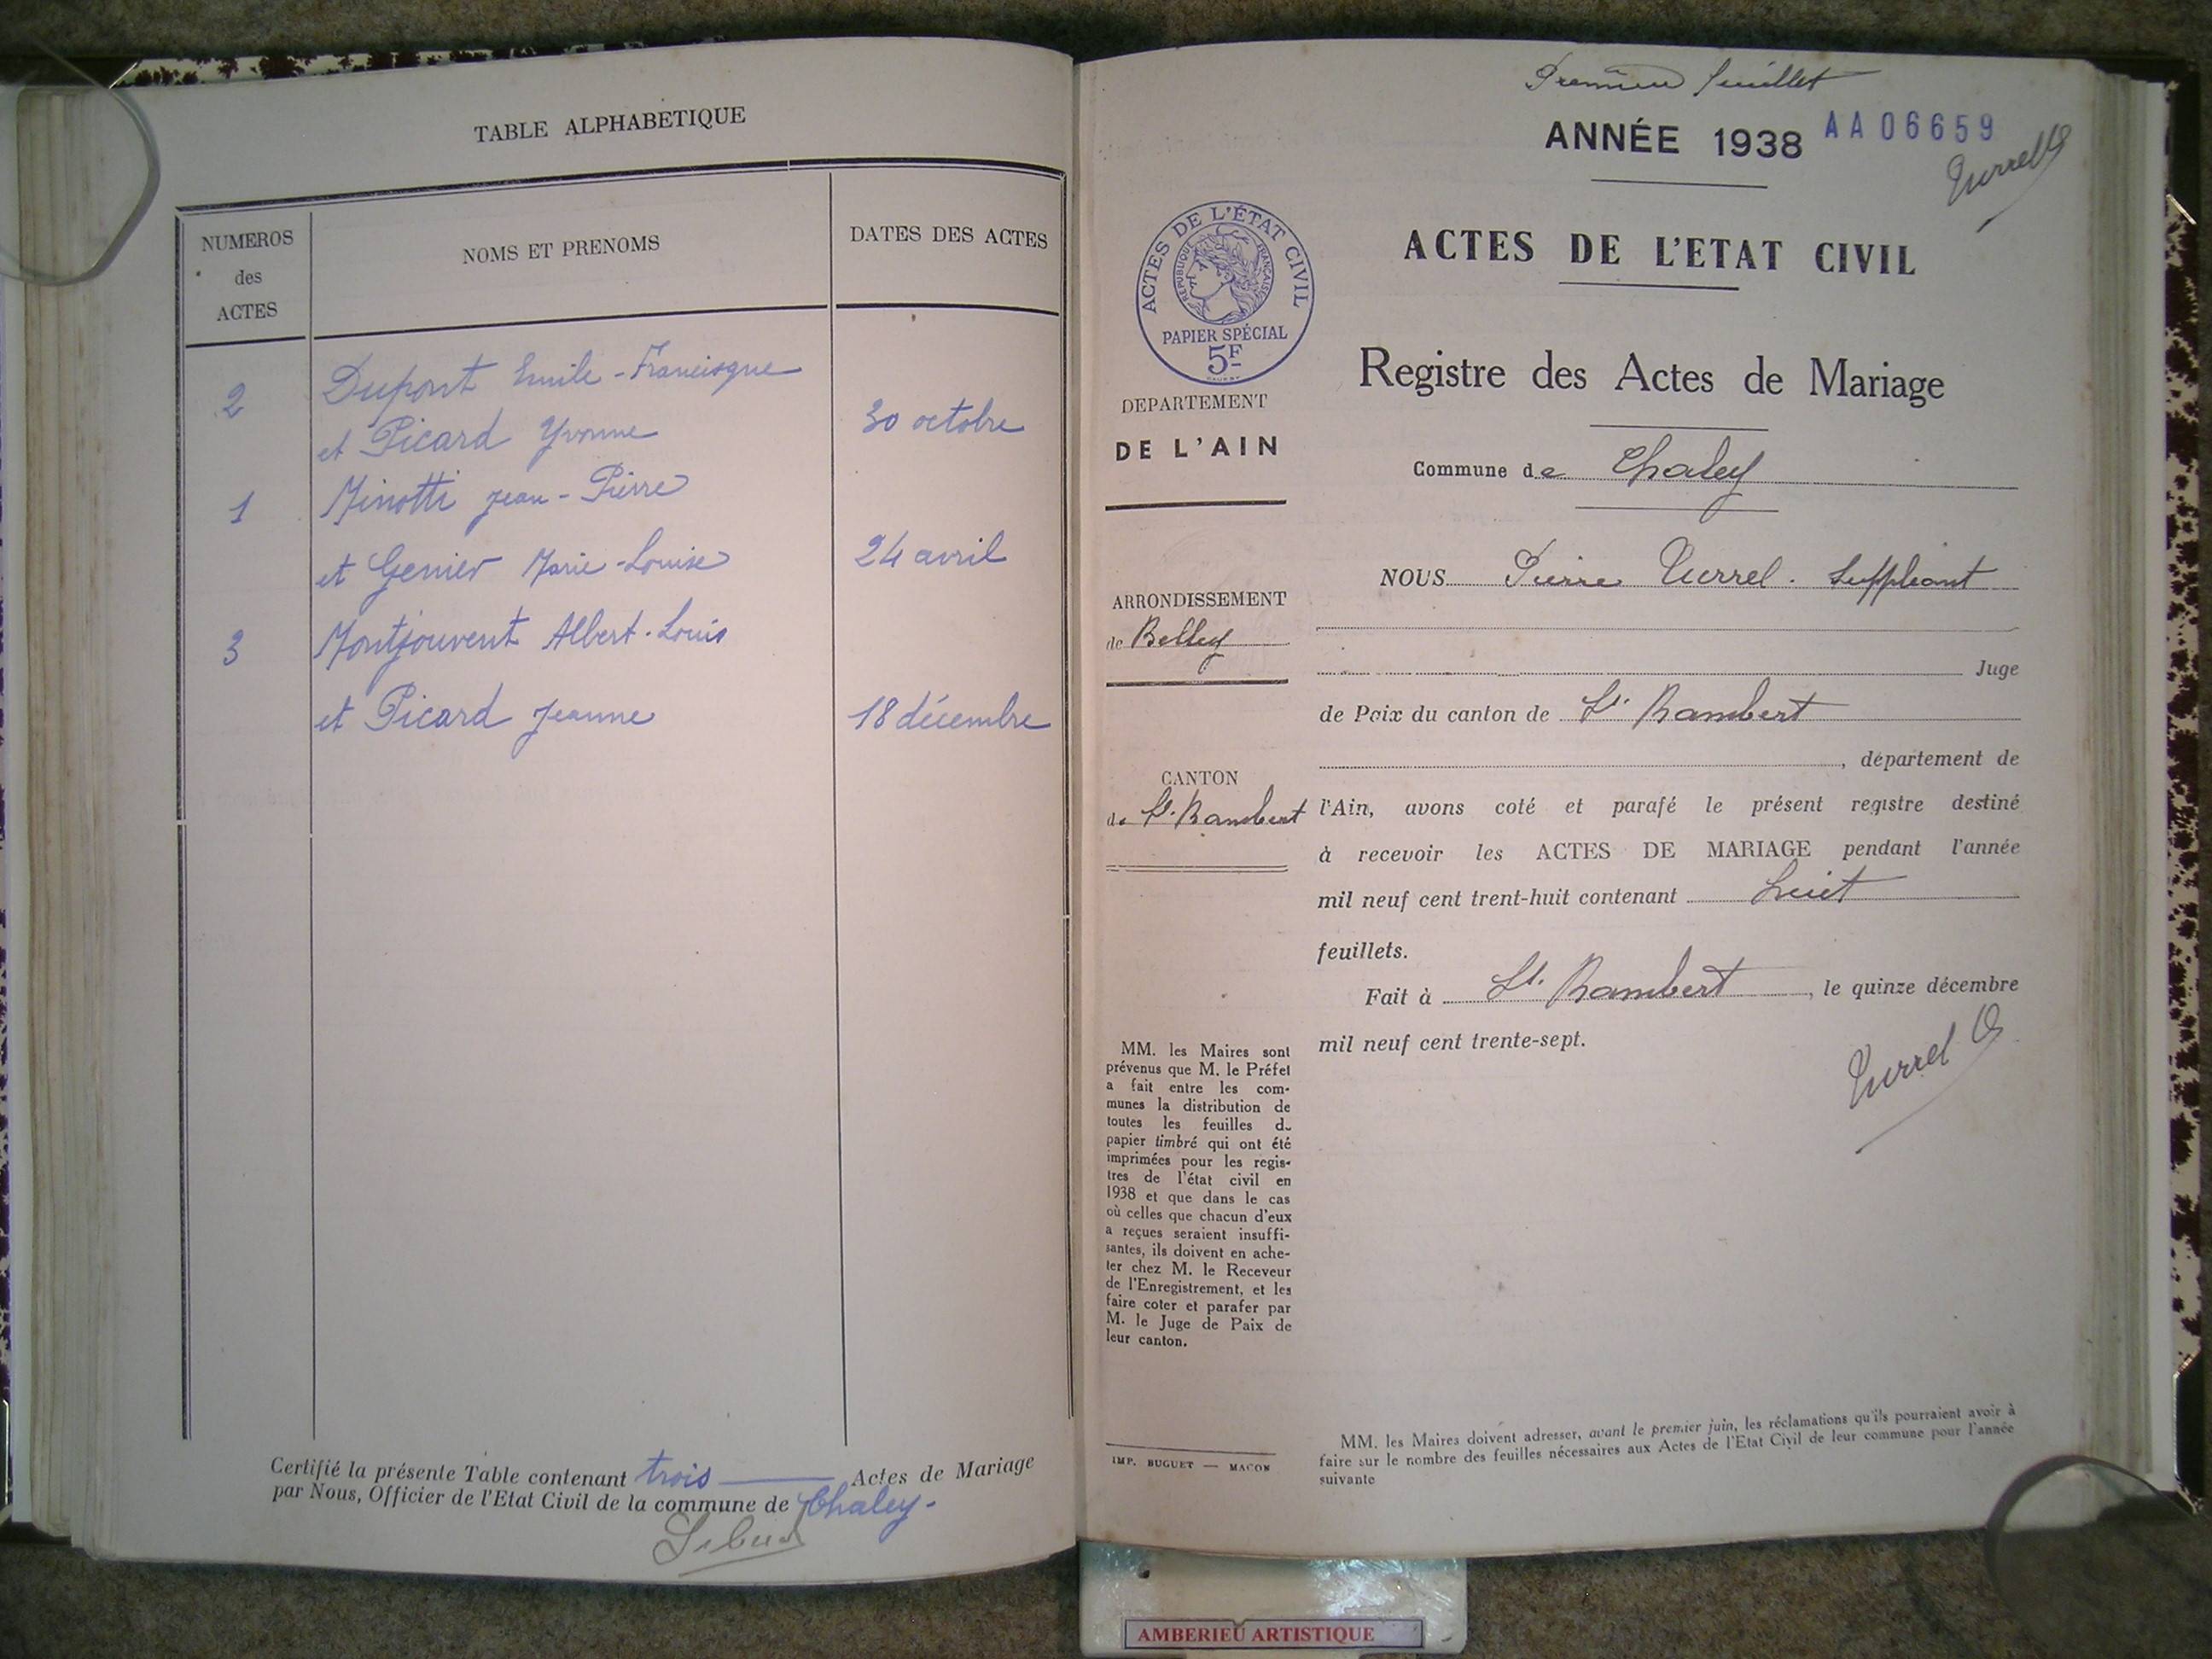 TABLE ALPHABETIQUE
NUMEROS
des
ACTES
NOMS ET PRENOMS
DATES DES ACTES
2
Dupont Emile-Francisque
et Picard Yvonne
30 octobre
1
Minotti Jean-Pierre
et Genier Marie-Louise
24 avril
3
Montjouvent Albert-Louis
et Picard Jeanne
18 décembre
Certifié la présente Table contenant trois Actes de Mariage
par Nous, Officier de l'Etat Civil de la commune de Chaley-
Premier feuillet
ANNÉE 1938
AA06659
Turrel
ACTES DE L'ÉTAT CIVIL
RÉPUBLIQUE FRANÇAISE
PAPIER SPÉCIAL
5F
ACTES DE L'ETAT CIVIL
Registre des Actes de Mariage
DEPARTEMENT
DE L'AIN
Commune de Chaley
NOUS Pierre Turrel. Suppléant
ARRONDISSEMENT
de Belley
Juge
de Paix du canton de St. Rambert
, département de
CANTON
de St. Rambert
l'Ain, avons coté et parafé le présent registre destiné
à recevoir les ACTES DE MARIAGE pendant l'année
mil neuf cent trent-huit contenant huit
feuillets.
Fait à St. Rambert, le quinze décembre
mil neuf cent trente-sept.
Turrel
MM. les Maires sont
prévenus que M. le Préfet
a fait entre les com-
munes la distribution de
toutes les feuilles de
papier timbré qui ont été
imprimées pour les regis-
tres de l'état civil en
1938 et que dans le cas
où celles que chacun d'eux
a reçues seraient insuffi-
santes, ils doivent en ache-
ter chez M. le Receveur
de l'Enregistrement, et les
faire coter et parafer par
M. le Juge de Paix de
leur canton.
IMP. BUGUET — MACON
MM. les Maires doivent adresser, avant le premier juin, les réclamations qu'ils pourraient avoir à
faire sur le nombre des feuilles nécessaires aux Actes de l'Etat Civil de leur commune pour l'année
suivante
AMBERIEU ARTISTIQUE